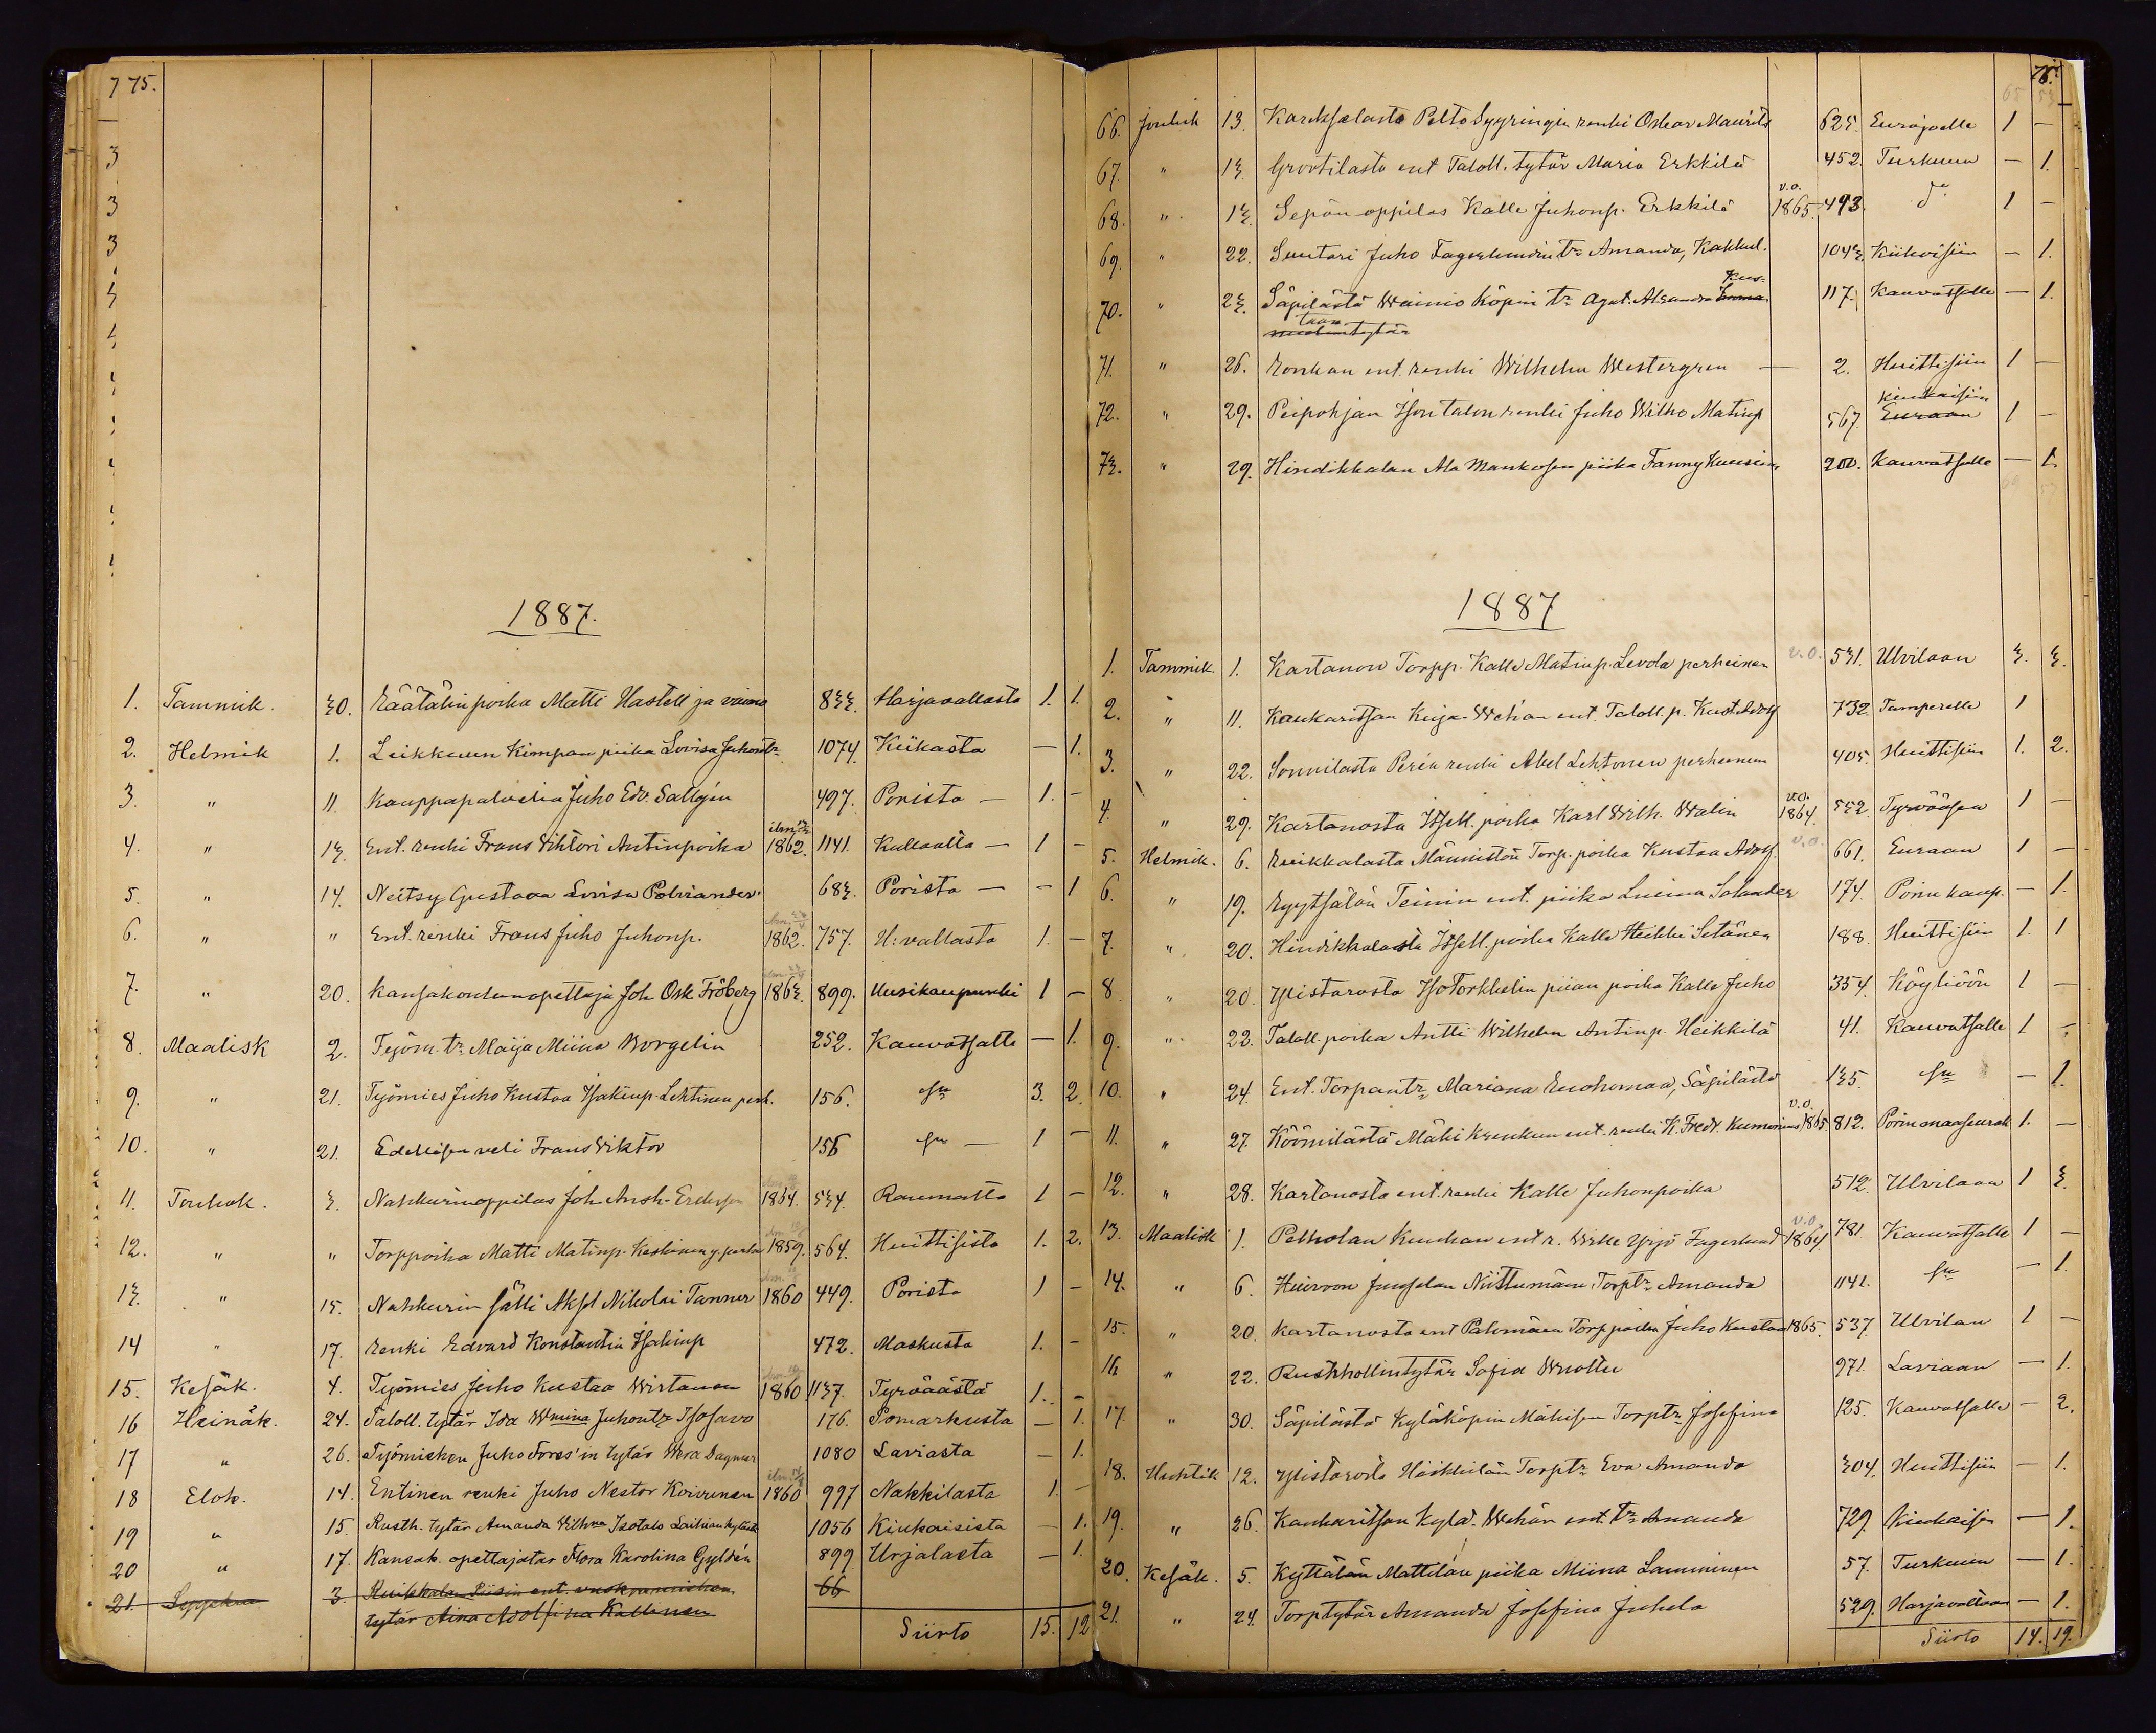 75.
1887.
1. Tammik. 30. Räätälinpoika Matti Hastell ja vaimo 833. Harjavallasta 1. 1.
2. Helmik 1. Leikkuun Kimpan piika Lovisa Juhontr 1074. Kiikasta — 1.
3. " 11. Kauppapalvelia Juho Edv. Sallgén 497. Porista — 1. -
4. " 13. Ent. renki Frans Vihtori Antinpoika 1862. 1141. Kullaalta — 1 -
5. " 14. Neitsy Gustava Lovisa Polviander 683. Porista — - 1
6. " " Ent. renki Frans Juho Juhonp. 1862. 757. H:vallasta 1. —
7. " 20. Kansakoulunopettaja Joh. Osk. Fröberg 1863. 899. Uusikaupunki 1 —
8. Maalisk 2. Tejöm. tr Maija Miina Borgelin 252. Kauvatsalta — 1.
9. " 21. Työmies Juho Kustaa Isakinp. Lehtinen perh. 156. 3. 2.
10. " 21. Edellisen veli Frans Viktor 156 — 1 —
11. Touhok. 3. Nahkurinoppilas Joh. Ansh. 1864. 534. Raumalta 1 —
12. " " Torppoika Matti Matinp. Keskinen y. perh. 1859. 564. Huittisista 1. 2.
13. " 15. Nahkurin sälli Aksel Nikolai Tanner 1860 449. Porista 1 -
14 " 17. Renki Edvard Konstantin Isakinp 472. Maskusta 1. -
15. Kesäk. 4. Työmies Juho Kustaa Wirtanen 1860 1137. Tyrväästä 1. -
16 Heinäk. 24. Taloll. tytär Ida Wmina Juhontr Isosavo 176. Pomarkusta — 1.
17 " 26. Työmiehen Juho Fors'in tytär Wera Dagmar 1080 Laviasta — 1.
18 Elok. 14. Entinen renki Juho Nestor Koivunen 1860 997 Nakkilasta 1. -
19 " 15. Rusth. tytär Amanda Vilhna Isotalo 1056 Kiukaisista — 1.
20 " 17. Kansak. opettajatar Flora Karolina Gyldén 899 Urjalasta — 1.
21. Syysk. 3. Ruikkalan Riisin ent. 66
tytär Aina Adolfina Kallinen
Siirto 15. 12
76.
66. Jouluk 13. Karhsalasta Pelto Syyringin renki Oskar Maurits 625. Eurajoelle 1 —
67. " 13. Grootilasta ent Taloll. tytär Maria Erkkilä 452. Turkuun — 1.
68. " 13. Sepän oppilas Kalle Juhonp. Erkkilä v.o. 1865. 493. do 1 —
69. " 22. Suutari Juho Fagerlundin tr Amanda, Kakkul. 1043. Kiikoisiin — 1.
70. " 23. Säpilästä Wainio Köpin tr Agat. Alexandra Emma Kus- 117. Kauvatsalle — 1.
taan tytär
71. " 26. Ronkan ent. renki Wilhelm Westergren — 2. Huittisiin 1 —
72. " 29. Peipohjan Isontalon renki Juho Wilho Matinp 567 Euraan Kiukaisiin 1 —
73. " 29. Hindikkalan Ala Mankosen piika Fanny 200. Kauvatsalle — 1.
1887
1. Tammik. 1. Kartanon Torpp. Kalle Matinp. Levola perheinen v.o. 531. Ulvilaan 3. 3.
2. " 11. Kaukaritsan Keija-Wehan ent. Taloll. p. Kust. Adolf 732. Tampereelle 1
3. " 22. Sonnilasta Perin renki Abel Lehtonen perheineen 405. Huittisiin 1. 2.
4. " 29. Kartanosta Itsell. poika Karl Wilh. Walin v.o. 1864. 552. Tyrvääsen 1 —
5. Helmik. 6. Ruikkalasta Männistön Torp. poika Kustaa Adolf v.o. 661. Euraan 1 —
6. " 19. Ryytsälän Teinin ent. piika Sulander 174. Porin kaup. — 1.
7. " 20. Hindikkalasta Itsell. poika Kalle Heikki Setänen 188. Huittisiin 1. 1
8 " 20. Ylistarosta Iso Torkkelin piian poika Kalle Juho 354. Köyliöön 1 —
9. " 22. Taloll. poika Antti Wilhelm Antinp. Heikkilä 41. Kauvatsalle 1 -
10. " 24. Ent. Torpantr Mariana Ruohomaa, Säpilästä 135. — 1.
11. " 27. Köömilästä Mäki Krenkun ent. renki K. Fredr. v.o. 1865. 812. Porin maaseurak 1. —
12. " 28. Kartanosta ent. renki Kalle Juhonpoika 512. Ulvilaan 1 3.
13. Maalisk 1. Pelholan ent r. Yrjö Fagerlund v.o 1864 781. Kauvatsalle 1 —
14. " 6. Huivoon Junselan Niittumäen Torptr Amanda 1141. — 1.
15. " 20. Kartanosta ent Palomäen Torp poika Juho Kustaa 1865. 537 Ulvilan 1 —
16. " 22. Rusthollintytär Sofia Wuoltu 971. Laviaan — 1.
17. " 30. Säpilästä Kyläköpin Mäkisen Torptr Josefina 125. Kauvatsalle — 2.
18. Huhtik 12. Ylistarosta Häikkilän Torptr Eva Amanda 304. Huittisiin — 1.
19. " 26. Kaukaritsan Kylä-Wehän ent. tr Amanda 729. Kiukaisin — 1.
20. Kesäk. 5. Kyttälän Mattilan piika Miina Lamminen 57. Turkuun — 1.
21. " 24. Torptytär Amanda Josefina Juhela 529. Harjavaltaan — 1.
Siirto 14. 19.